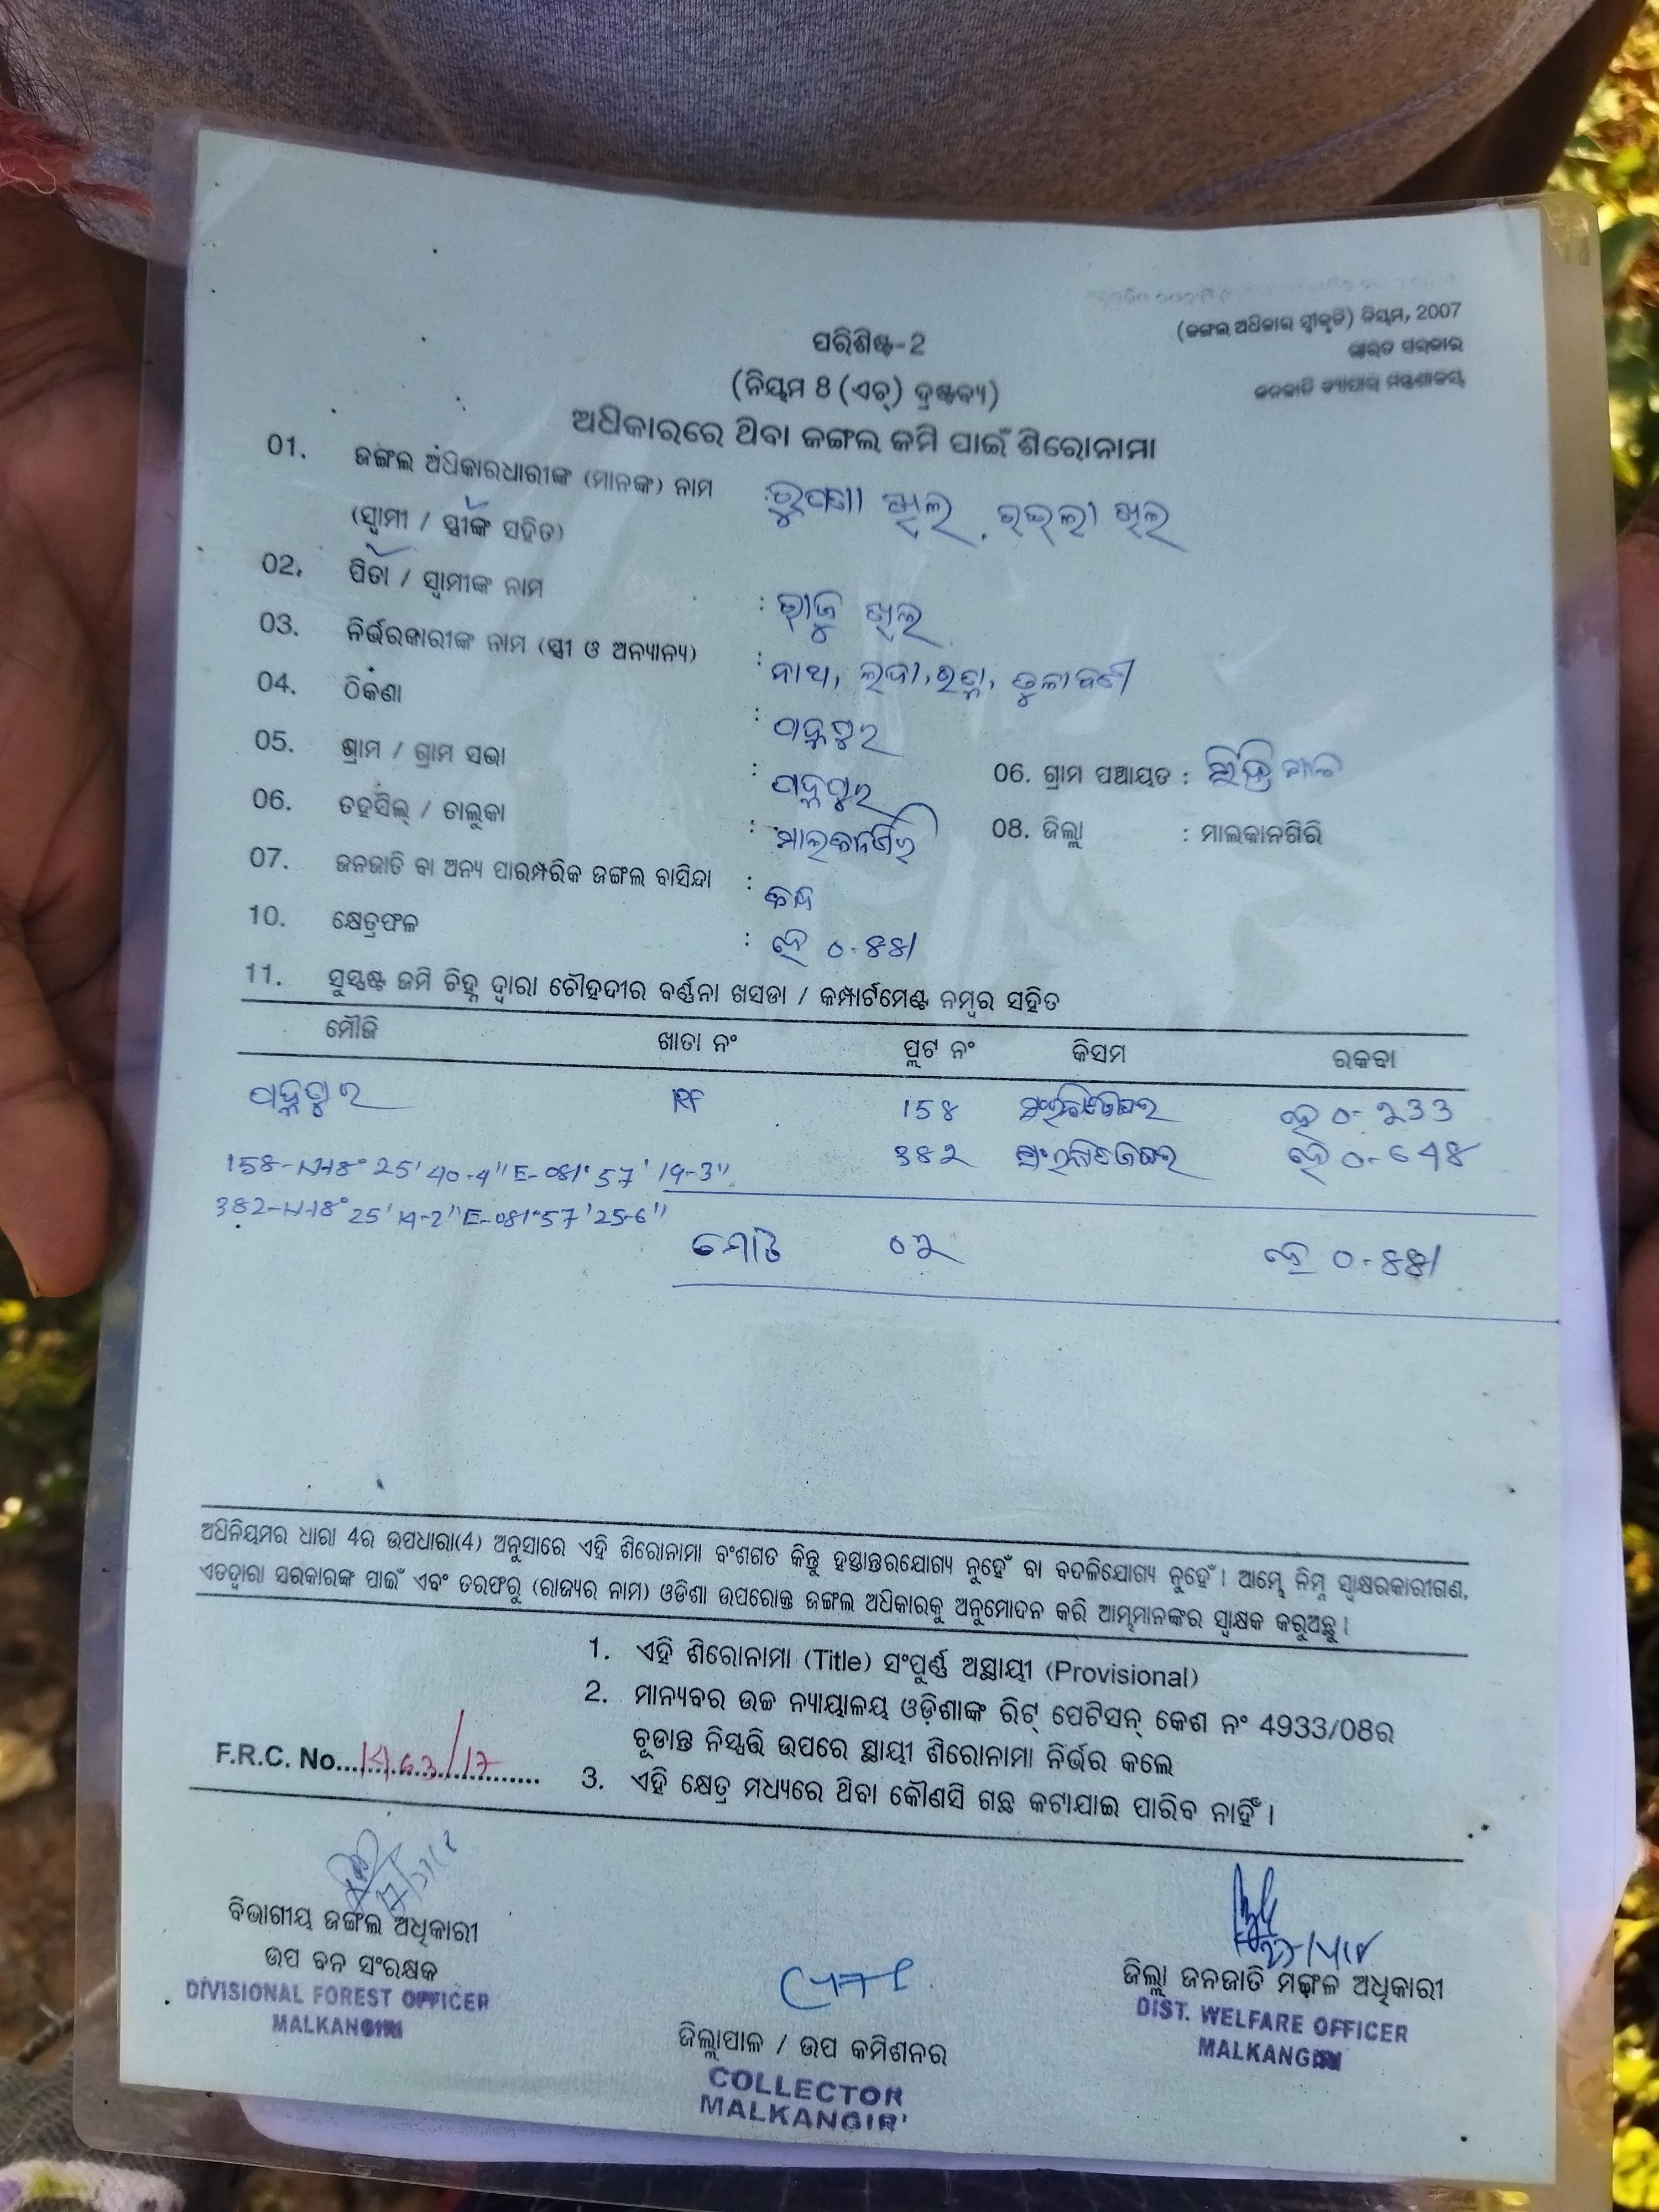 (ଜଙ୍ଗଲ ଅଧିକାର ସ୍ୱୀକୃତି) ନିୟମ, 2007
ଭାରତ ସରକାର
ଜନଜାତି ବ୍ୟାପାର ମନ୍ତ୍ରଣାଳୟ
ପରିଶିଷ୍ଟ-2
(ନିୟମ 8 (ଏଚ୍) ଦ୍ରଷ୍ଟବ୍ୟ)
ଅଧିକାରରେ ଥିବା ଜଙ୍ଗଲ ଜମି ପାଇଁ ଶିରୋନାମା
01. ଜଙ୍ଗଲ ଅଧିକାରଧାରୀଙ୍କ (ମାନଙ୍କ) ନାମ :
(ସ୍ୱାମୀ / ସ୍ତ୍ରୀଙ୍କ ସହିତ)
02. ପିତା / ସ୍ୱାମୀଙ୍କ ନାମ :
03. ନିର୍ଭରକାରୀଙ୍କ ନାମ (ସ୍ତ୍ରୀ ଓ ଅନ୍ୟାନ୍ୟ) :
04. ଠିକଣା : ପଦ୍ମପୁର
05. ଗ୍ରାମ / ଗ୍ରାମ ସଭା : ପଦ୍ମପୁର 06. ଗ୍ରାମ ପଞ୍ଚାୟତ :
06. ତହସିଲ୍ / ତାଲୁକା : ମାଲକାନଗିରି 08. ଜିଲ୍ଲା : ମାଲକାନଗିରି
07. ଜନଜାତି ବା ଅନ୍ୟ ପାରମ୍ପରିକ ଜଙ୍ଗଲ ବାସିନ୍ଦା : କନ୍ଧ
10. କ୍ଷେତ୍ରଫଳ : ହେ ୦.୫୫୧
11. ସୁସ୍ପଷ୍ଟ ଜମି ଚିହ୍ନ ଦ୍ୱାରା ଚୌହଦୀର ବର୍ଣ୍ଣନା ଖସଡା / କମ୍ପାର୍ଟମେଣ୍ଟ ନମ୍ବର ସହିତ
ମୌଜି ଖାତା ନଂ ପ୍ଲଟ ନଂ କିସମ ରକବା
ପଦ୍ମପୁର RF
158-N-18° 25' 40.4" E-081° 57' 19.3"
382-N-18° 25' 14.2" E-081° 57' 25.6"
ମୋଟ ୦୨ ହେ ୦.୫୫୧
ଅଧିନିୟମର ଧାରା 4ର ଉପଧାରା(4) ଅନୁସାରେ ଏହି ଶିରୋନାମା ବଂଶଗତ କିନ୍ତୁ ହସ୍ତାନ୍ତରଯୋଗ୍ୟ ନୁହେଁ ବା ବଦଳିଯୋଗ୍ୟ ନୁହେଁ । ଆମ୍ଭେ ନିମ୍ନ ସ୍ୱାକ୍ଷରକାରୀଗଣ,
ଏତଦ୍ୱାରା ସରକାରଙ୍କ ପାଇଁ ଏବଂ ତରଫରୁ (ରାଜ୍ୟର ନାମ) ଓଡିଶା ଉପରୋକ୍ତ ଜଙ୍ଗଲ ଅଧିକାରକୁ ଅନୁମୋଦନ କରି ଆମ୍ଭମାନଙ୍କର ସ୍ୱାକ୍ଷକ କରୁଅଛୁ ।
1. ଏହି ଶିରୋନାମା (Title) ସଂପୂର୍ଣ୍ଣ ଅସ୍ଥାୟୀ (Provisional)
2. ମାନ୍ୟବର ଉଚ୍ଚ ନ୍ୟାୟାଳୟ ଓଡ଼ିଶାଙ୍କ ରିଟ୍ ପେଟିସନ୍ କେଶ ନଂ 4933/08ର
ଚୂଡାନ୍ତ ନିସ୍ପତ୍ତି ଉପରେ ସ୍ଥାୟୀ ଶିରୋନାମା ନିର୍ଭର କଲେ
F.R.C. No. 1463/17
3. ଏହି କ୍ଷେତ୍ର ମଧ୍ୟରେ ଥିବା କୌଣସି ଗଛ କଟାଯାଇ ପାରିବ ନାହିଁ ।
ବିଭାଗୀୟ ଜଙ୍ଗଲ ଅଧିକାରୀ
ଉପ ବନ ସଂରକ୍ଷକ
DIVISIONAL FOREST OFFICER
MALKANGIRI
ଜିଲ୍ଲାପାଳ / ଉପ କମିଶନର
COLLECTOR
MALKANGIRI
ଜିଲ୍ଲା ଜନଜାତି ମଙ୍ଗଳ ଅଧିକାରୀ
DIST. WELFARE OFFICER
MALKANGIRI